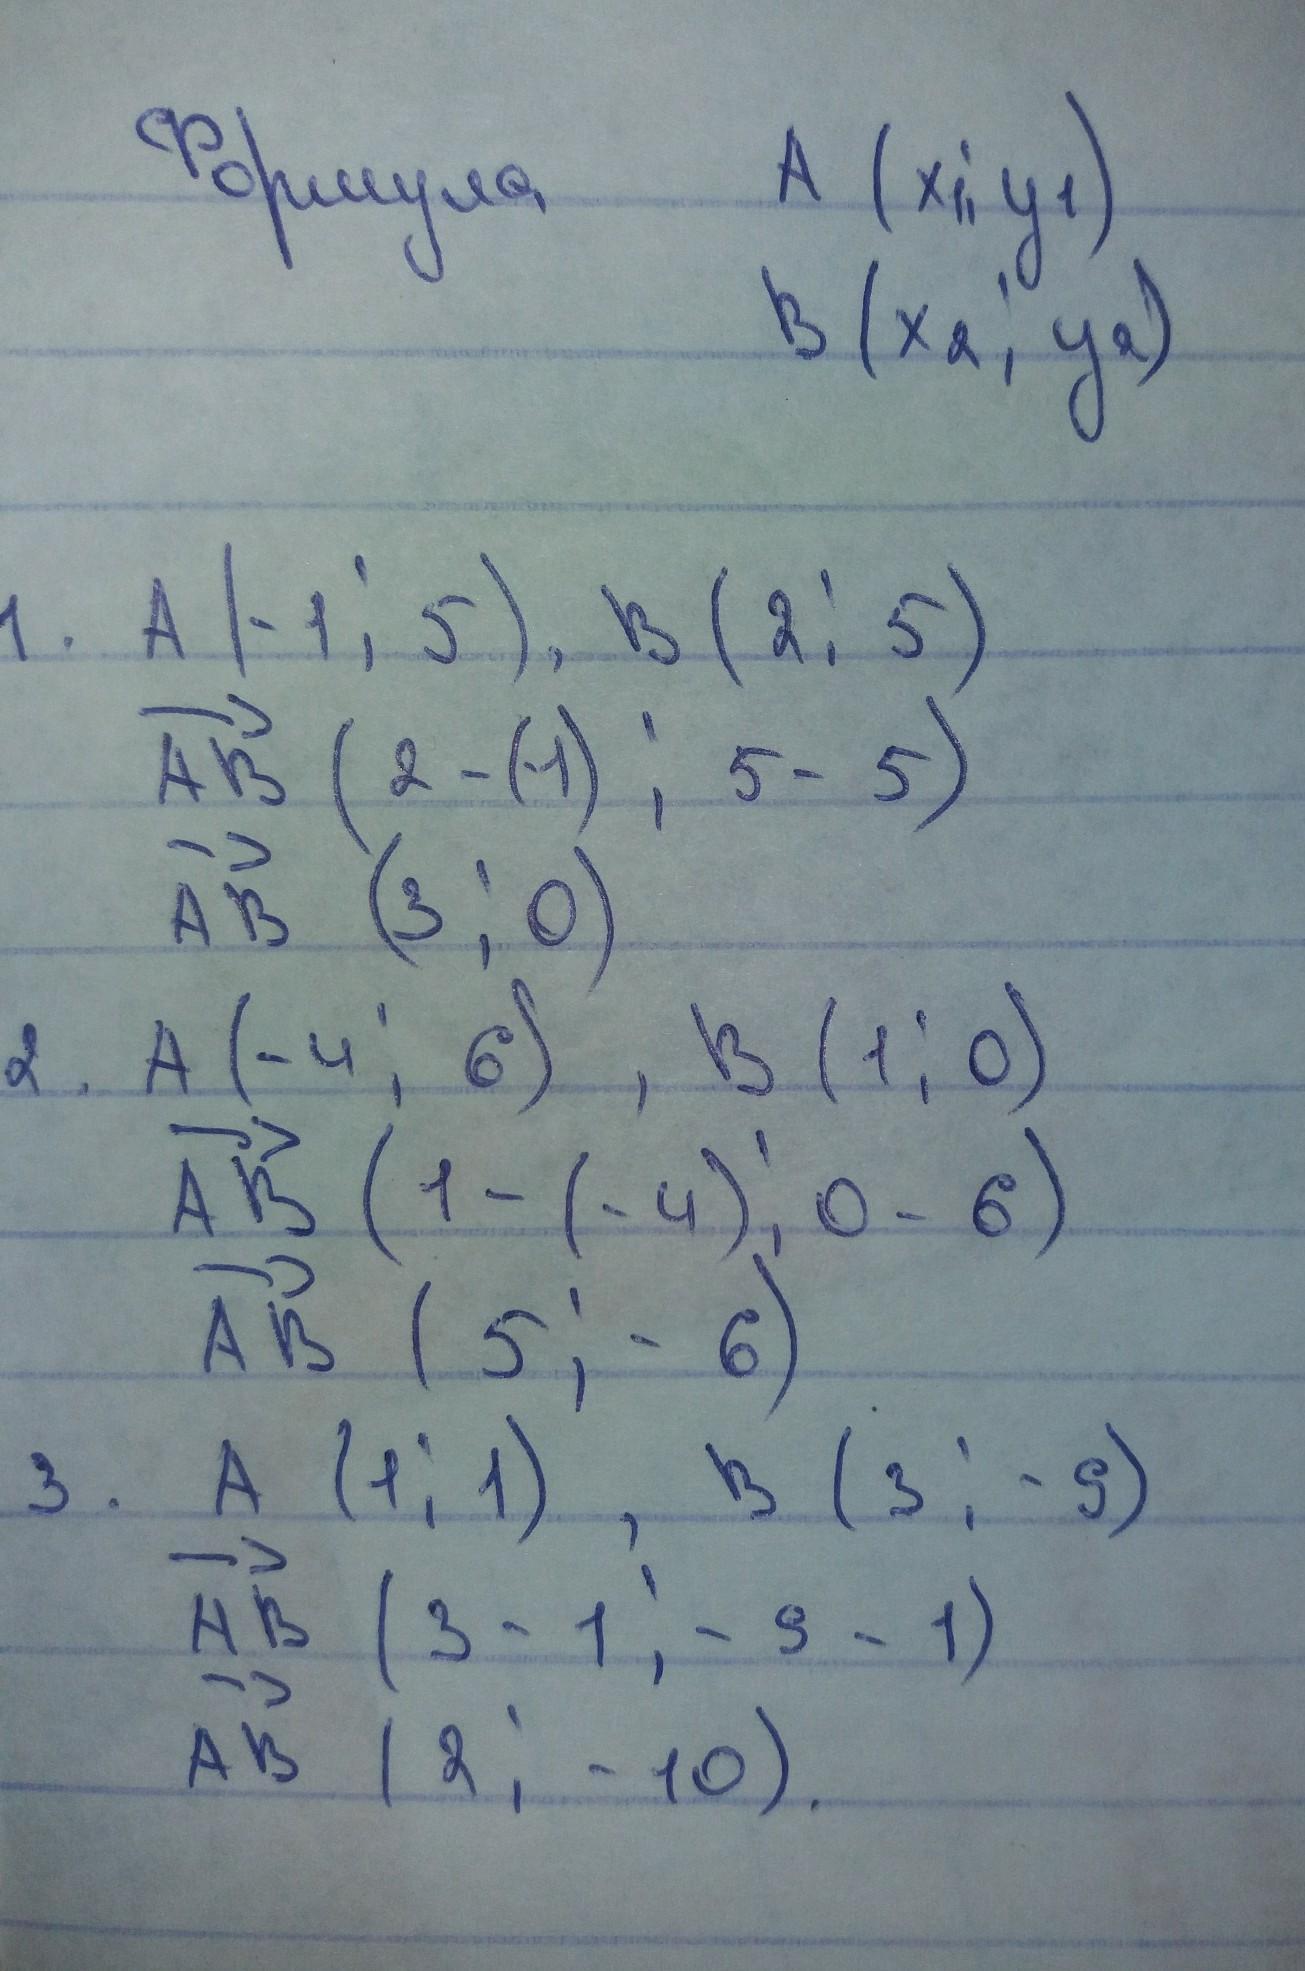 Формула A (x1; y1)
B (x2; y2)
1. A (-1; 5), B (2; 5)
AB (2 - (-1); 5 - 5)
AB (3; 0)
2. A (-4; 6), B (1; 0)
AB (1 - (-4); 0 - 6)
AB (5; -6)
3. A (1; 1), B (3; -9)
AB (3 - 1; -9 - 1)
AB (2; -10).